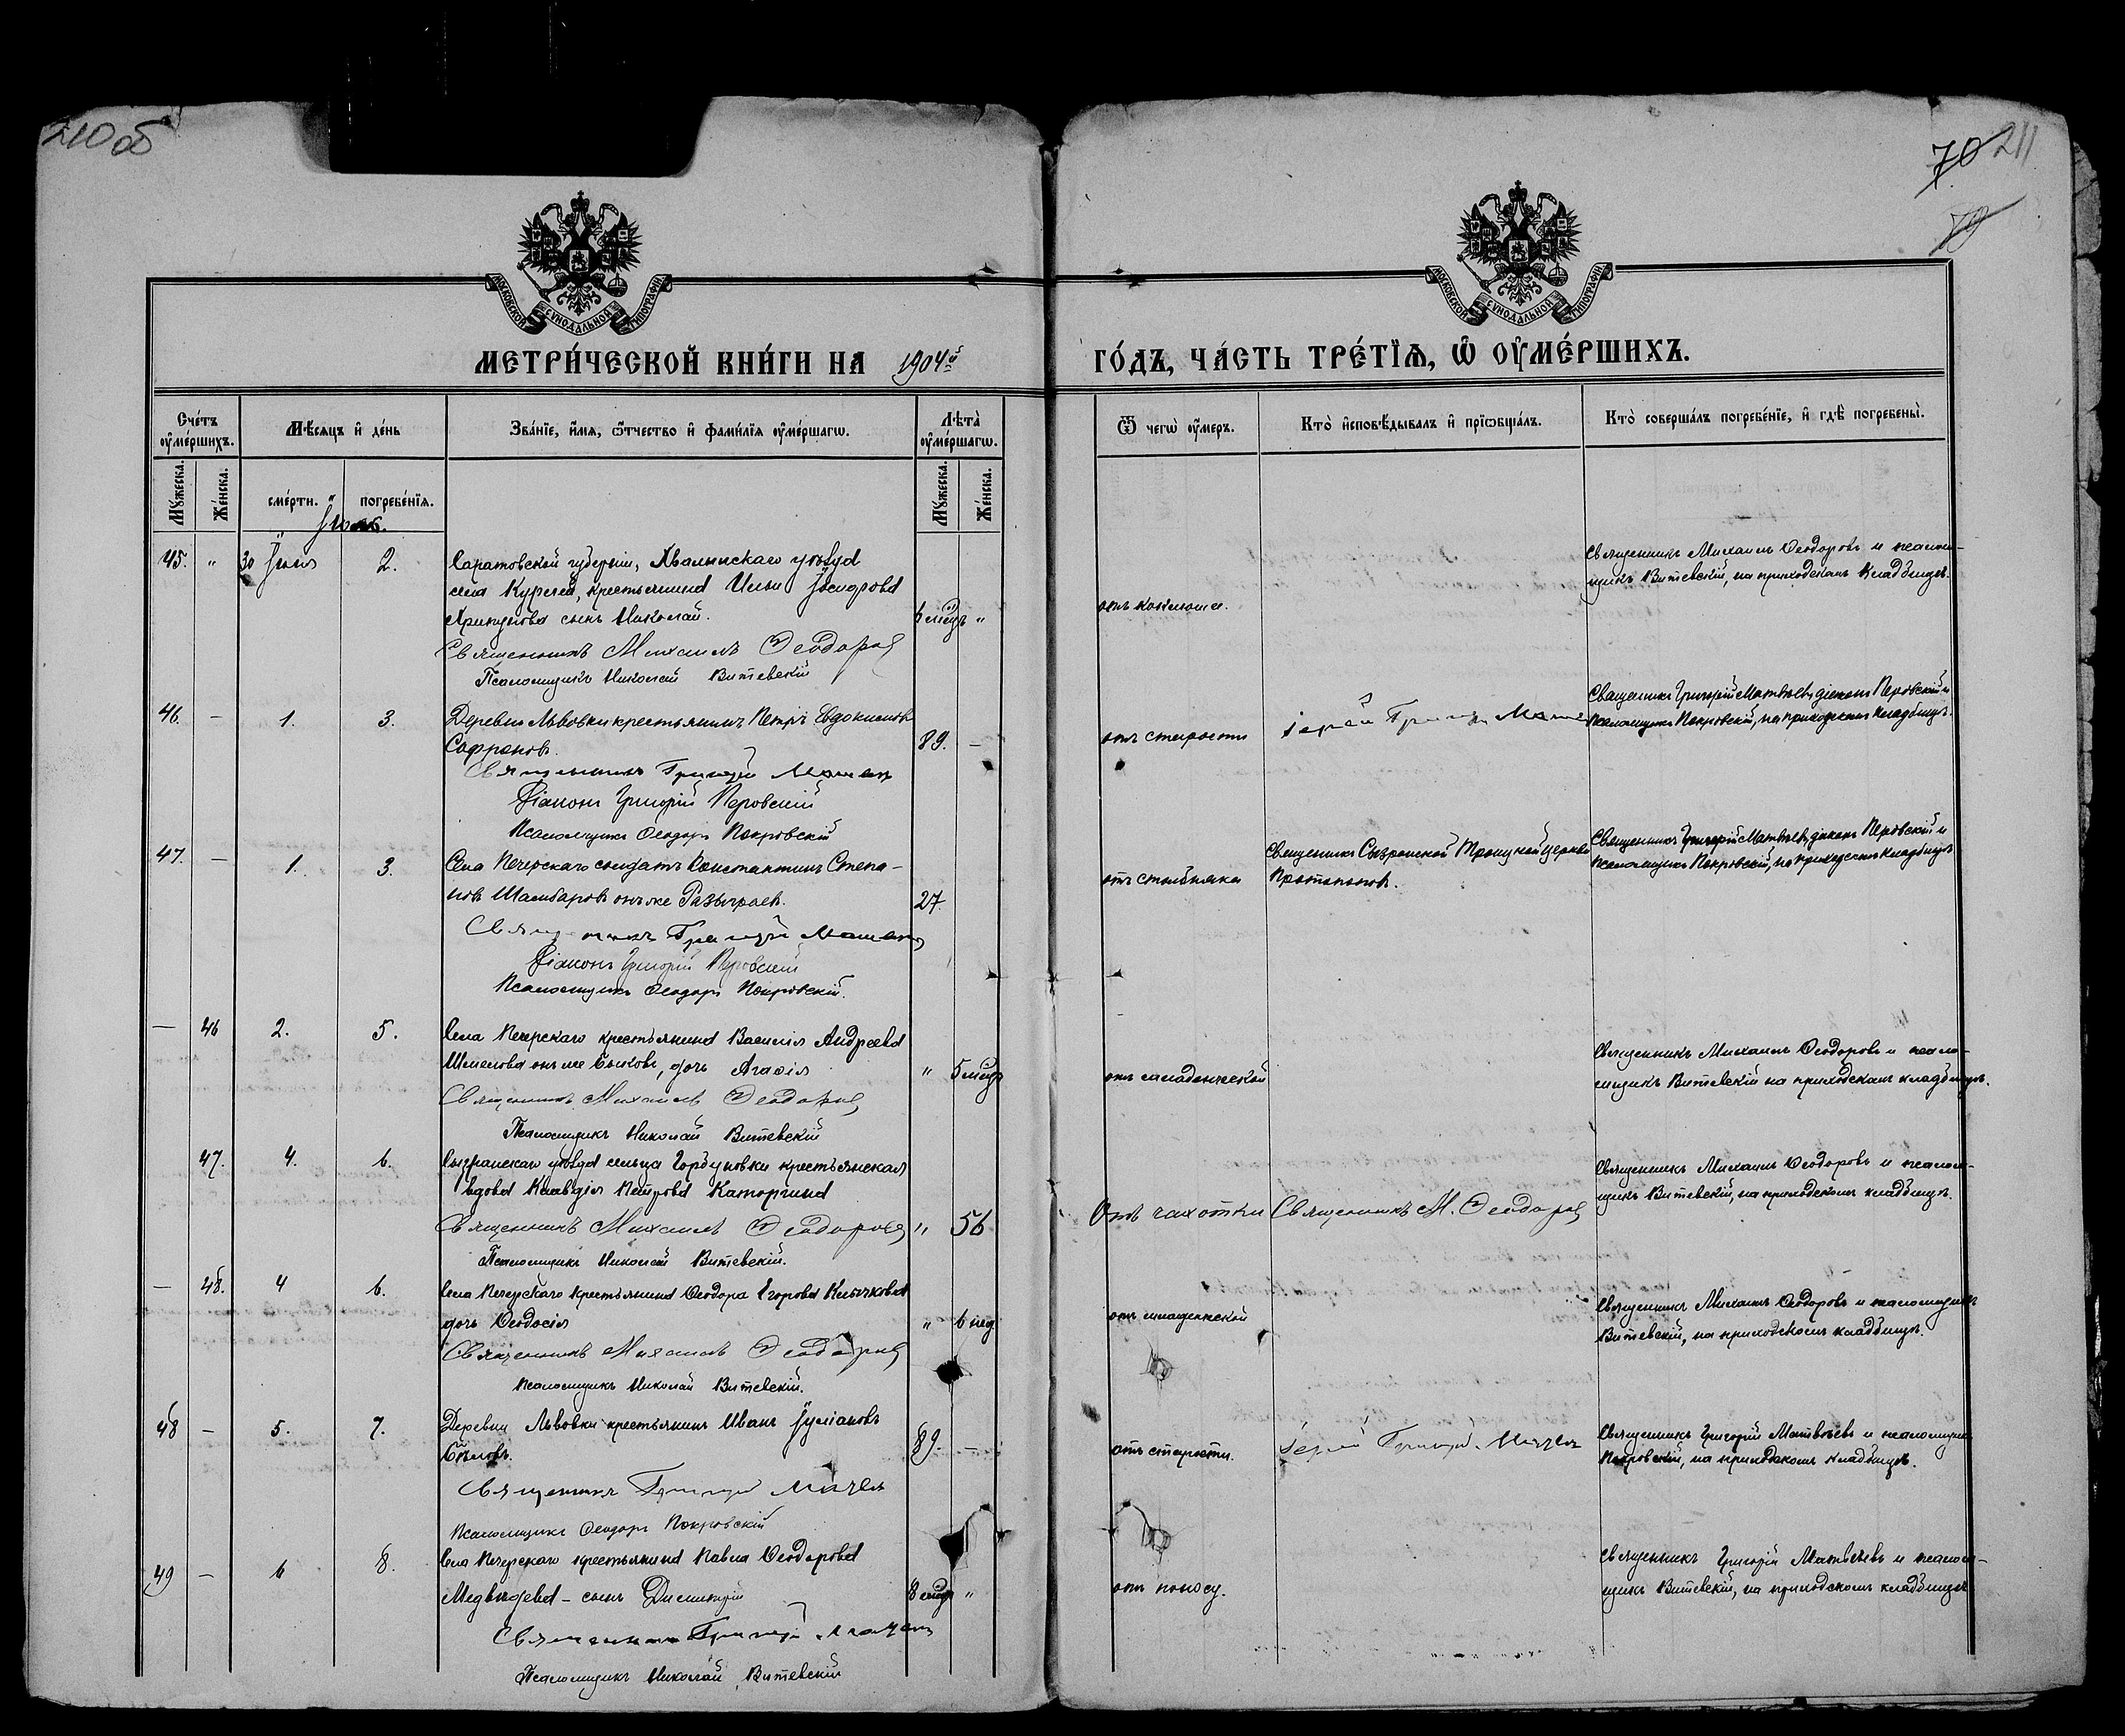 210 об
70 211
70
МОСКОВСКОЙ СУНОДАЛЬНОЙ ТИПОГРАФІИ
МОСКОВСКОЙ СУНОДАЛЬНОЙ ТИПОГРАФІИ
МЕТРИ́ЧЕСКОЙ КНИ́ГИ НА 1904й ГО́ДЪ, ЧА́СТЬ ТРЕ́ТЇѦ, Ѡ ОУМЕ́РШИХЪ.
Сче́тъ оуме́ршихъ.
Мѣсяцъ и де́нь
Зва́нїе, и́мѧ, ѻ́тчество и фами́лїѧ оуме́ршагѡ.
Лѣта̀ оуме́ршагѡ.
Ѿ чегѡ̀ оу́меръ.
Кто̀ исповѣ́дывалъ и прїѡбща́лъ.
Кто̀ соверша́лъ погребе́нїе, и гдѣ̀ погребены̀.
Мꙋ́жеска.
Же́нска.
сме́рти.
погребе́нїѧ.
Мꙋ́жеска.
Же́нска.
45. " 30 2.
Саратовской губерніи, Хвалынскаго уѣзда
села крестьянина Ильи
сынъ Николай.
Священникъ Михаилъ Ѳеодоровъ
Псаломщикъ Николай Витевскій
отъ коклюша.
Священникъ Михаилъ Ѳеодоровъ и псалом-
щикъ Витевскій, на приходскомъ кладбищѣ.
46. — 1. 3.
Деревни Львовки крестьянинъ Петръ Евдокимовъ
Софроновъ. 89. —
Священникъ Григорій
Діаконъ Григорій Перовскій
Псаломщикъ Ѳеодоръ Покровскій
отъ старости
Іерей Григорій
Священникъ Григорій Матвѣевъ, діаконъ Перовскій и
псаломщикъ Покровскій, на приходскомъ кладбищѣ.
47. — 1. 3.
Села Печерскаго солдатъ Константинъ Степа-
новъ онъ же 27.
Священникъ Григорій
Діаконъ Григорій Перовскій
Псаломщикъ Ѳеодоръ Покровскій.
отъ столбняка
Священникъ Сызранской Троицкой церкви
Протопоповъ.
Священникъ Григорій Матвѣевъ, діаконъ Перовскій и
псаломщикъ Покровскій, на приходскомъ кладбищѣ
— 46 2. 5.
Села Печерскаго крестьянина Василія Андреева
онъ же Быковъ, дочь Агафія " 5 мѣсяц
Священникъ Михаилъ Ѳеодоровъ
Псаломщикъ Николай Витевскій
отъ младенческой
Священникъ Михаилъ Ѳеодоровъ и псалом-
щикъ Витевскій на приходскомъ кладбищѣ.
47. 4. 6.
Сызранскаго уѣзда сельца Горбуновки крестьянская
вдова Клавдія Петрова Каторгина
Священникъ Михаилъ Ѳеодоровъ " 56
Псаломщикъ Николай Витевскій.
Отъ чахотки
Священникъ М. Ѳеодоровъ
Священникъ Михаилъ Ѳеодоровъ и псалом-
щикъ Витевскій, на приходскомъ кладбищѣ.
— 48. 4 6.
Села Печерскаго крестьянина Ѳеодора Егорова Клычкова
дочь Ѳеодосія " 6 нед
Священникъ Михаилъ Ѳеодоровъ
Псаломщикъ Николай Витевскій.
отъ младенческой
Священникъ Михаилъ Ѳеодоровъ и псаломщикъ
Витевскій, на приходскомъ кладбищѣ.
48 — 5. 7.
Деревни Львовки крестьянинъ Иванъ Іуліановъ
89. —
Священникъ Григорій
Псаломщикъ Ѳеодоръ Покровскій
отъ старости.
Іерей Григорій
Священникъ Григорій Матвѣевъ и псаломщикъ
Покровскій, на приходскомъ кладбищѣ.
49 — 6 8.
Села Печерскаго крестьянина Павла Ѳеодорова
Медвѣдева – сынъ Димитрій 8 мѣсяц "
Священникъ Григорій
Псаломщикъ Николай Витевскій
отъ поносу.
Священникъ Григорій Матвѣевъ и псалом-
щикъ Витевскій, на приходскомъ кладбищѣ